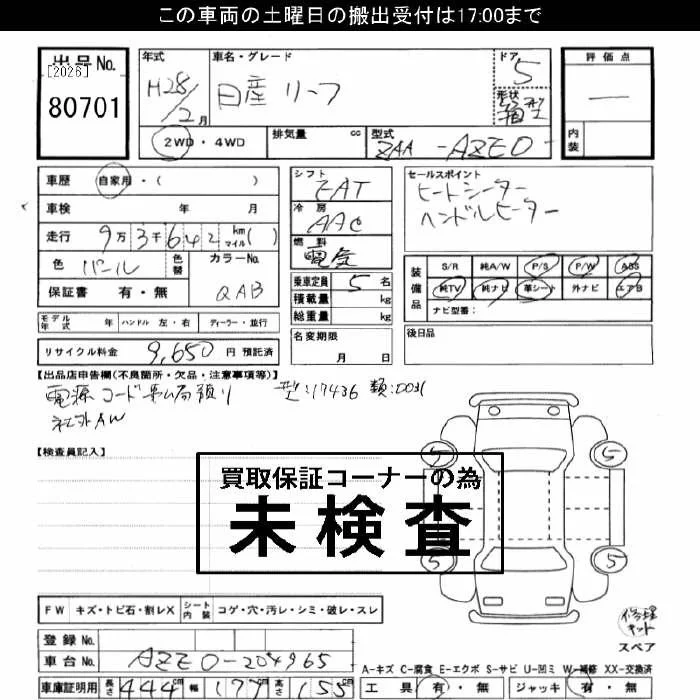 この車両の土曜日の搬出受付は17:00まで
出品No. 年式 車名・グレード ドア 評価点
[2026] H28/2月 日産 リーフ 5 —
80701 形状 箱型
2WD・4WD 排気量 cc 型式 ZAA-AZE0- 内装
車歴 自家用・( ) シフト FAT セールスポイント
車検 年 月 冷房 AAC ヒートシーター
走行 9万3千642 km マイル( ) 燃料 電気 ハンドルヒーター
色 パール 色替 カラーNo. QAB
保証書 有・無
乗車定員 5名
積載量 kg
総重量 kg
装備品 S/R 純A/W P/S P/W ABS
純TV 純ナビ 革シート 外ナビ エアB
ナビ型番:
モデル年式 年 ハンドル 左・右 ディーラー・並行 名変期限 月 日 後日品
リサイクル料金 9,650 円 預託済
【出品店申告欄(不良箇所・欠品・注意事項等)】
電源コード 事ム局預り 型:17436 類:0031
社外AW
【検査員記入】
買取保証コーナーの為
未検査
5 5
5 5
FW キズ・トビ石・割レX シート内装 コゲ・穴・汚レ・シミ・破レ・スレ
修理キット
スペア
登録No.
車台No. AZE0-204965
A-キズ C-腐食 E-エクボ S-サビ U-凹ミ W-補修 XX-交換済
車庫証明用 長さ 444cm 幅 177cm 高さ 155cm 工具 有・無 ジャッキ 有・無